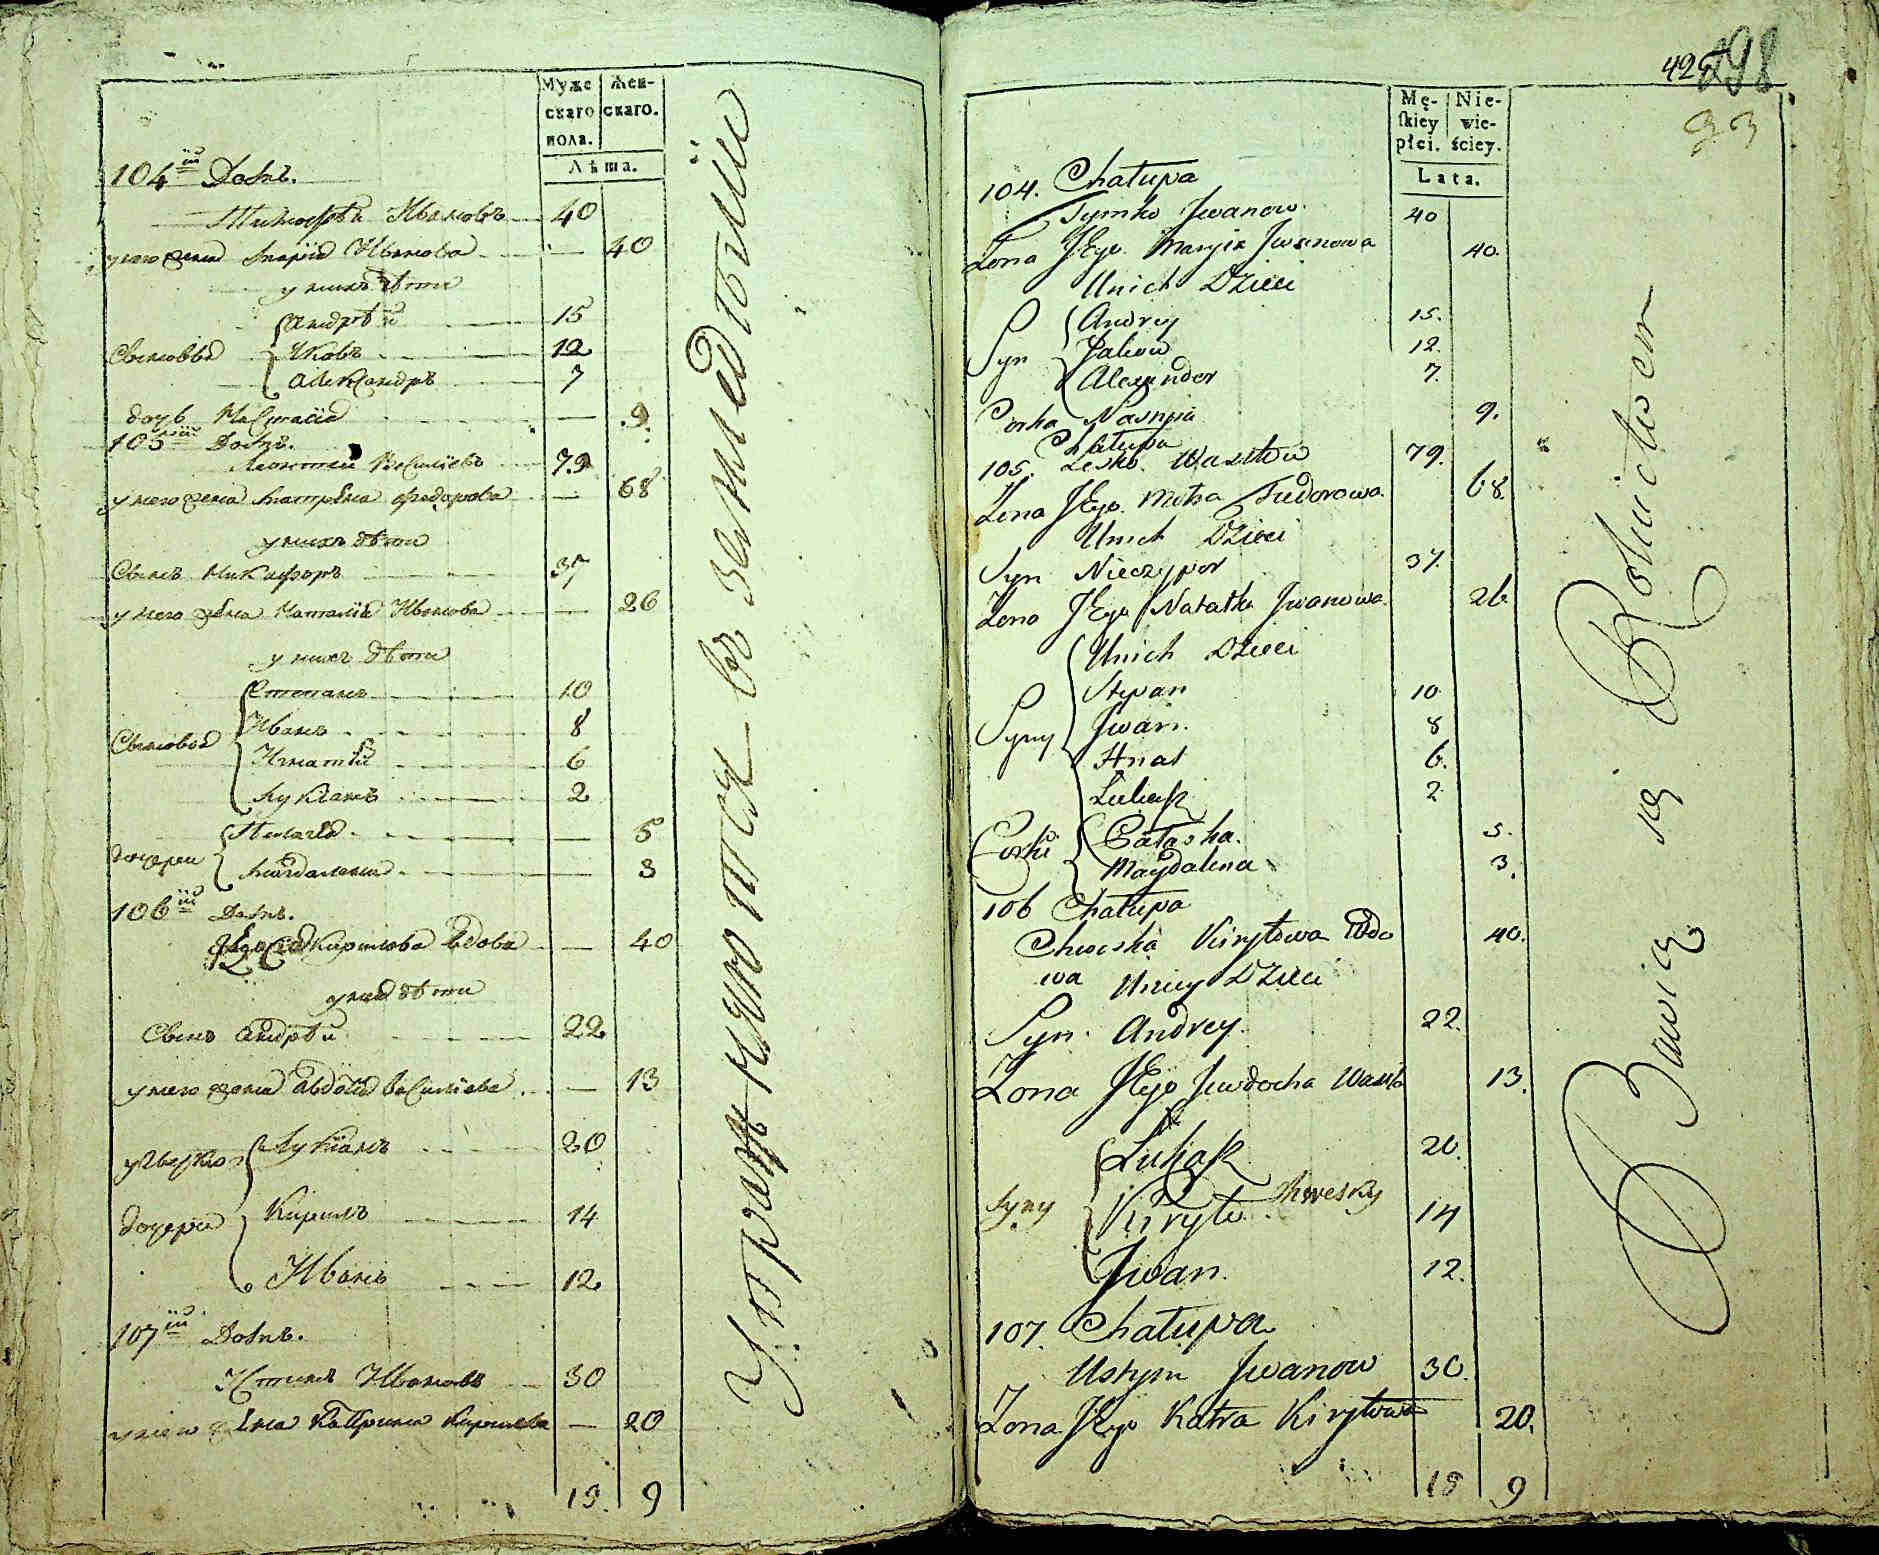 Муже
скаго
пола.
Жен-
скаго.
Лѣта.
104ій Домъ.
Тимофѣй Ивановъ 40
у него жена Марія Иванова 40
у нихъ дѣти
Сыновья Андрѣй 15
Яковъ 12
Александръ 7
дочь Настасія 9
105ый Домъ.
Леонтей Василіевъ 79
у него жена Матрёна Федорова 68
у нихъ дѣти
Сынъ Никифоръ 37
у него жена Наталія Иванова 26
у нихъ дѣти
Сыновья Степанъ 10
Иванъ 8
Игнатій 6
Лукіанъ 2
дочери Пелагія 5
Магдалена 3
106ій Домъ.
Кирилова вдова 40
у нея дѣти
Сынъ Андрѣй 22
у него жена Авдотія Василіева 13
Лукіанъ 20
дочери Кирилъ 14
Иванъ 12
107ій Домъ.
Устинъ Ивановъ 30
у него жена Катерина Кирилова 20
19. 9
Упражняются въ земледѣліи
425
298
93
Mę-
skiey
płci.
Nie-
wie-
ściey.
Lata.
104. Chałupa
Tymko Jwanow 40
Żona Jego Maryia Jwanowa 40.
Unich Dzieci
Syn Andrey 15.
Jakow 12.
Alexander 7.
Corka Nastyia 9.
Chałupa
105. Lesko Wasilow 79.
Żona Jego Motra Fiedorowa 68.
Unich Dzieci
Syn Nieczypor 37.
Żona Jego Natałka Jwanowa 26
Unich Dzieci
Syny Stepan 10
Jwan. 8
Hnat 6.
Łukasz 2
Corki Pałaszka. 5.
Magdalena 3.
106 Chałupa
Chweska Kiryłowa Wdo 40.
wa Unicy Dzieci
Syn. Andrey. 22.
Żona Jego Jewdocha Wasilo 13.
Łukasz 20.
Syny Kiryło Chwesky 14
Jwan. 12.
107. Chałupa
Ustym Jwanow 30.
Żona Jego Katra Kiryłowa 20.
19 9
Bawią się Rolnictwem